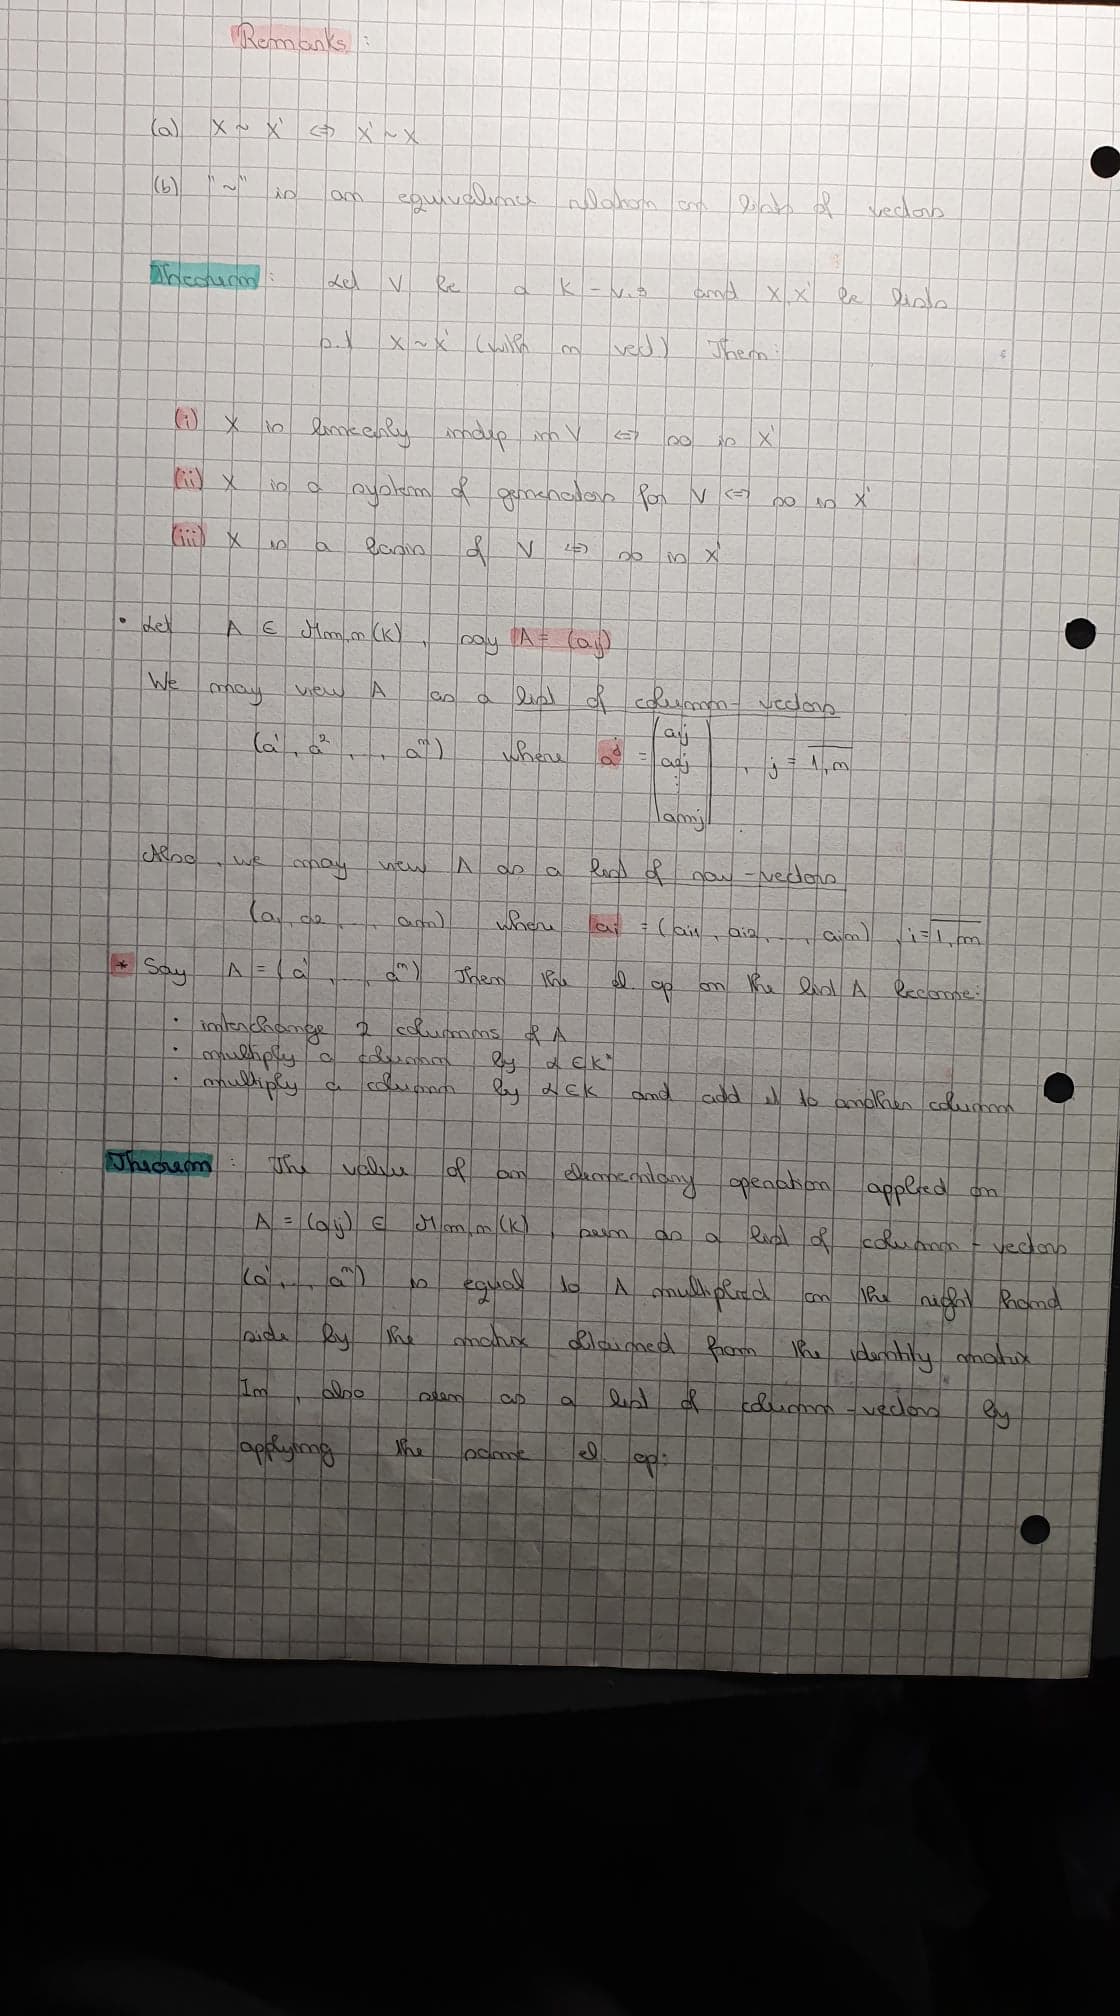 Remarks :
(a) X ~ X' ⇔ X' ~ X
(b) "~" is an equivalence relation on lists of vectors
Theorem : Let V be a K-v.s and X, X' be lists
s.t X ~ X' (with n vect) Then:
(i) X is linearly indep in V ⇔ so is X'
(ii) X is a system of generators for V ⇔ so is X'
(iii) X is a basis of V ⇔ so is X'
• Let A ∈ Mm,n(K), say A = (aij)
We may view A as a list of column-vectors
(a¹, a², ..., aⁿ) where aʲ = (a1j a2j : amj), j = 1,n
Also, we may view A as a list of row-vectors
(a1, a2, ..., am) where ai = (ai1, ai2, ..., ain), i = 1,m
* Say A = (a¹, ..., aⁿ) Then the el. op on the list A become:
· interchange 2 columns of A
· multiply a column by α ∈ K*
· multiply a column by α ∈ K and add it to another column
Theorem : The value of an elementary operation applied on
A = (aij) ∈ Mm,n(K), seen as a list of column-vectors
(a¹, ..., aⁿ) is equal to A multiplied on the right hand
side by the matrix obtained from the identity matrix
In, also seen as a list of column-vectors by
applying the same el. op.